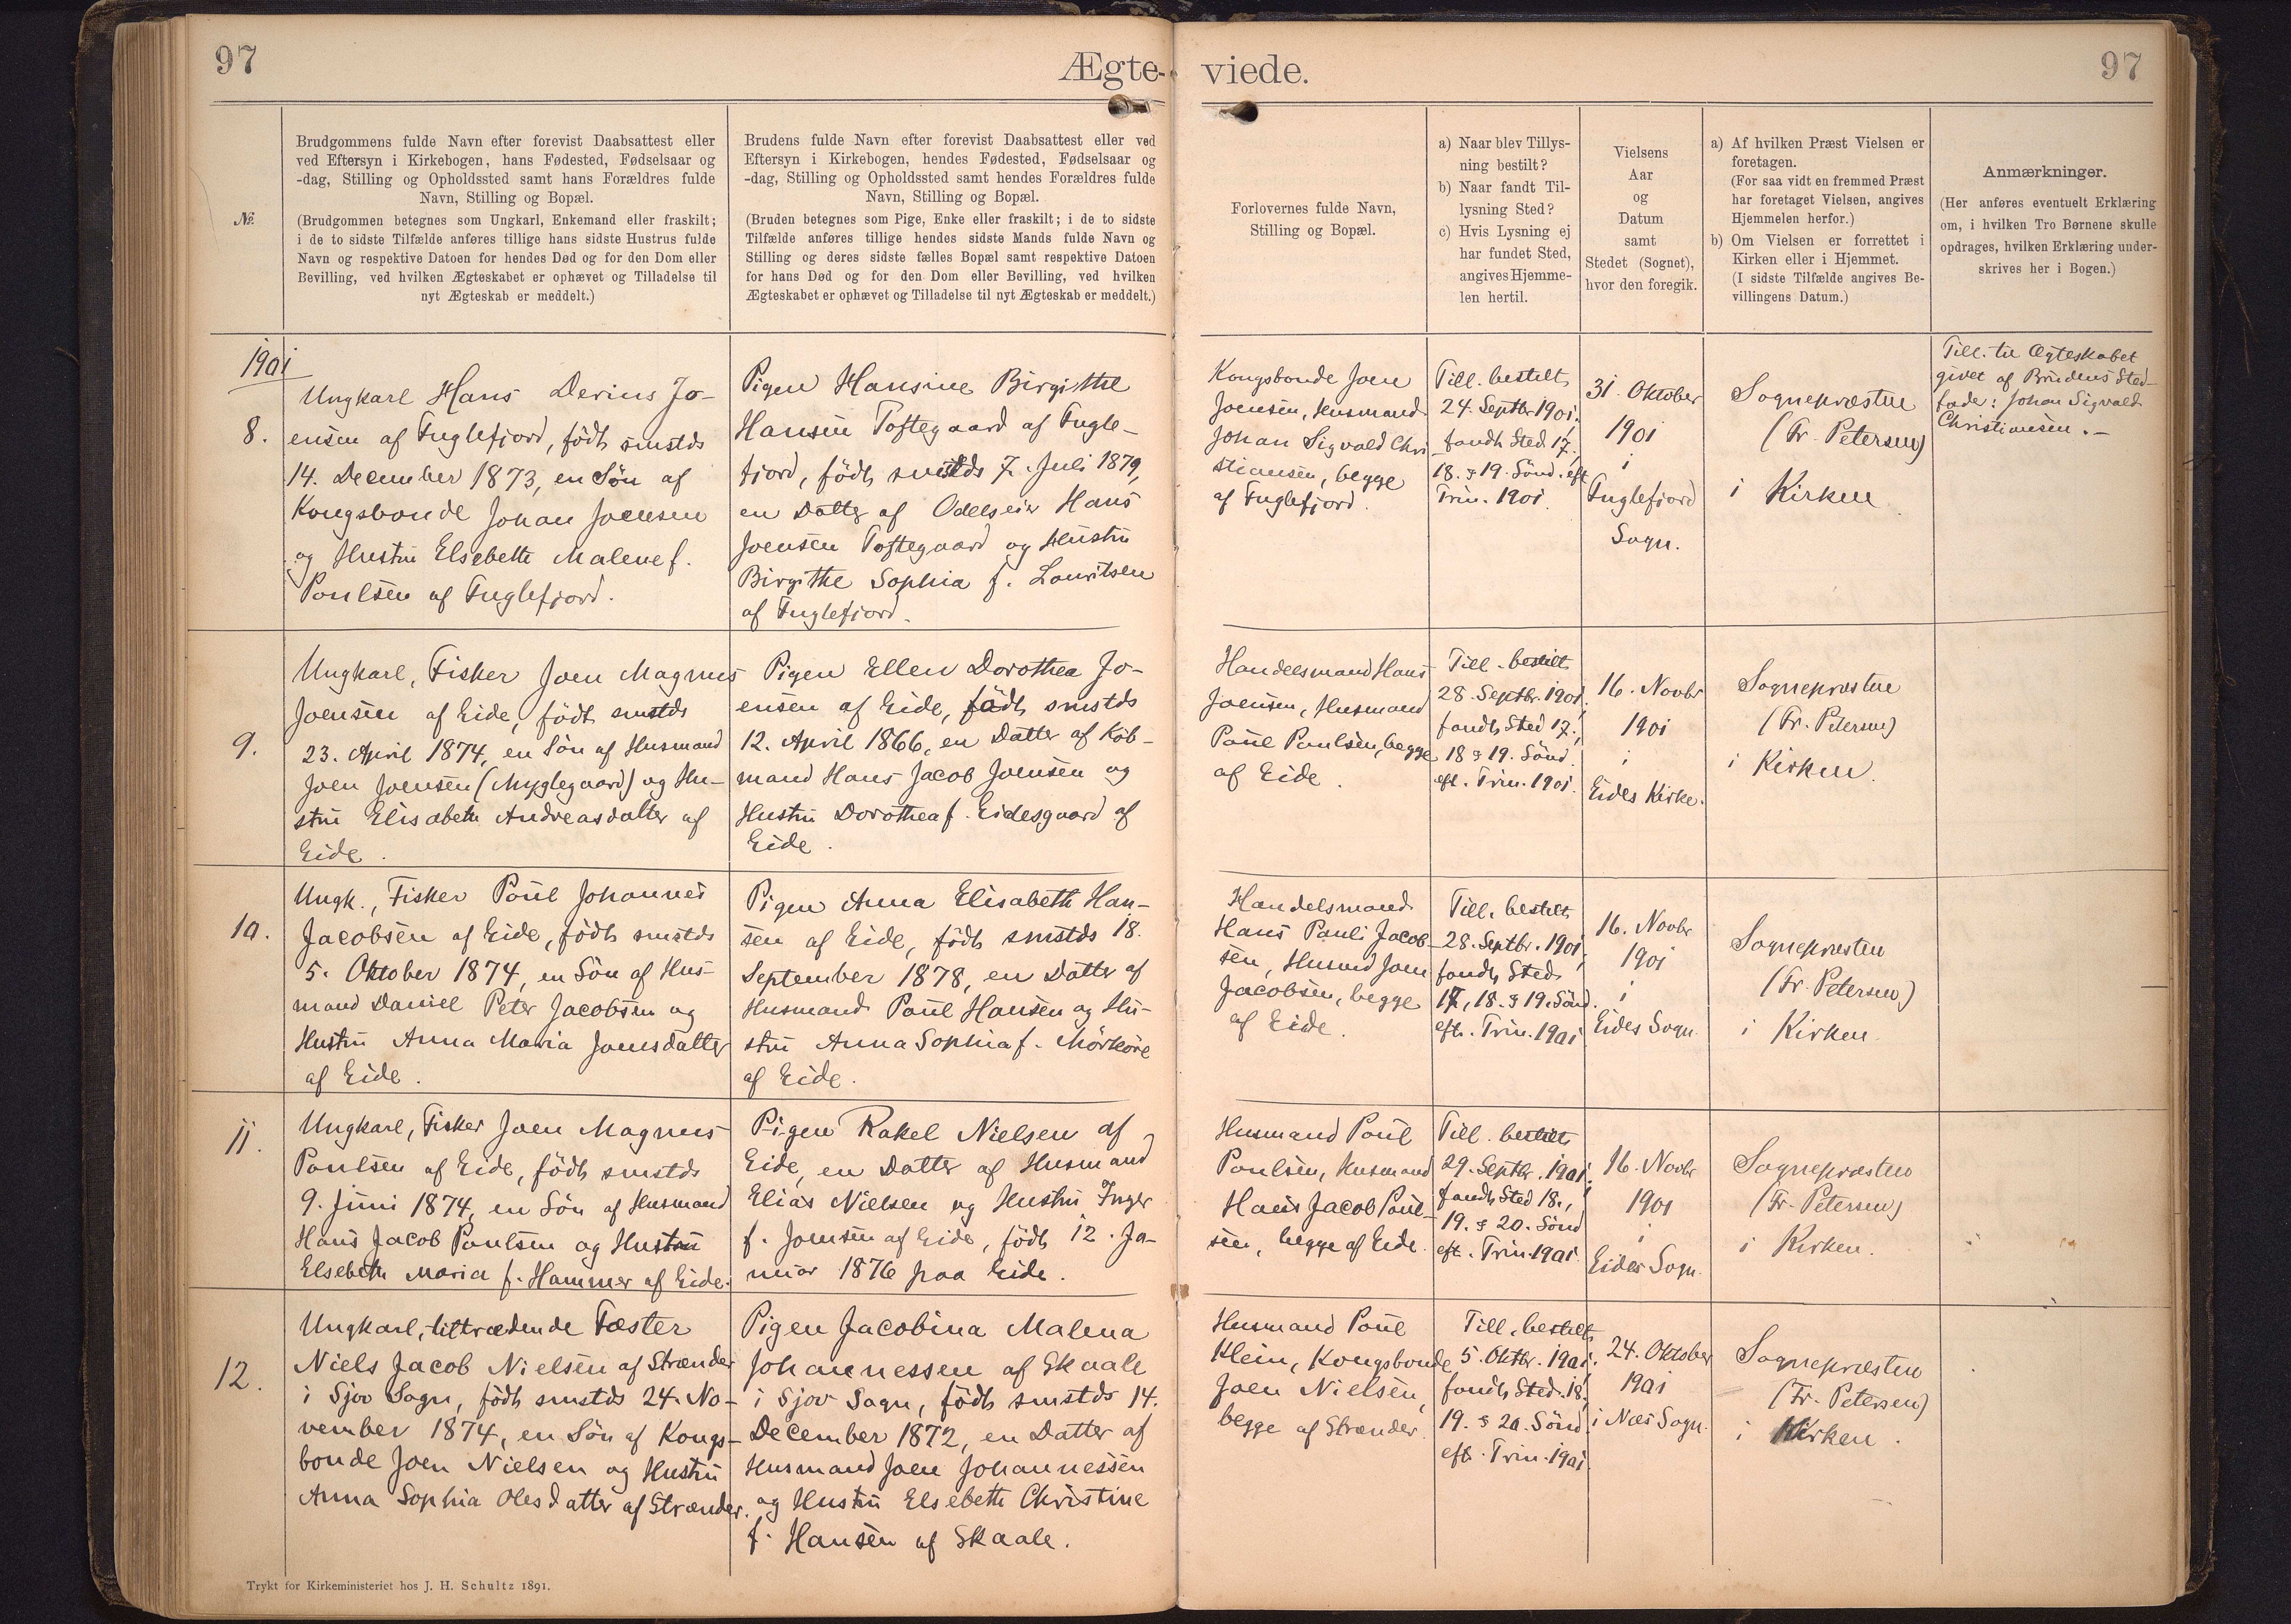 97
Ægte-
viede.
97
№
Brudgommens fulde Navn efter forevist Daabsattest eller
ved Eftersyn i Kirkebogen, hans Fødested, Fødselsaar og
-dag, Stilling og Opholdssted samt hans Forældres fulde
Navn, Stilling og Bopæl.
(Brudgommen betegnes som Ungkarl, Enkemand eller fraskilt;
i de to sidste Tilfælde anføres tillige hans sidste Hustrus fulde
Navn og respektive Datoen for hendes Død og for den Dom eller
Bevilling, ved hvilken Ægteskabet er ophævet og Tilladelse til
nyt Ægteskab er meddelt.)
Brudens fulde Navn efter forevist Daabsattest eller ved
Eftersyn i Kirkebogen, hendes Fødested, Fødselsaar og
-dag, Stilling og Opholdssted samt hendes Forældres fulde
Navn, Stilling og Bopæl.
(Bruden betegnes som Pige, Enke eller fraskilt; i de to sidste
Tilfælde anføres tillige hendes sidste Mands fulde Navn og
Stilling og deres sidste fælles Bopæl samt respektive Datoen
for hans Død og for den Dom eller Bevilling, ved hvilken
Ægteskabet er ophævet og Tilladelse til nyt Ægteskab er meddelt.)
Forlovernes fulde Navn,
Stilling og Bopæl.
a) Naar blev Tillys-
ning bestilt?
b) Naar fandt Til-
lysning Sted?
c) Hvis Lysning ej
har fundet Sted,
angives Hjemme-
len hertil.
Vielsens
Aar
og
Datum
samt
Stedet (Sognet),
hvor den foregik.
a) Af hvilken Præst Vielsen er
foretagen.
(For saa vidt en fremmed Præst
har foretaget Vielsen, angives
Hjemmelen herfor.)
b) Om Vielsen er forrettet i
Kirken eller i Hjemmet.
(I sidste Tilfælde angives Be-
villingens Datum.)
Anmærkninger.
(Her anføres eventuelt Erklæring
om, i hvilken Tro Børnene skulle
opdrages, hvilken Erklæring under-
skrives her i Bogen.)
1901
8.
Ungkarl Hans Derius Jo-
ensen af Fuglefjord, født smstds
14. December 1873, en Søn af
Kongsbonde Johan Joensen
og Hustru Elsebeth Malene f.
Poulsen af Fuglefjord.
Pigen Hansine Birgithe
Hansen Toftegaard af Fugle-
fjord, født smstds 7. Juli 1879,
en Datter af Odelseier Hans
Joensen Toftegaard og Hustru
Birgithe Sophia f. Lauritsen
af Fuglefjord.
Kongsbonde Joen
Joensen, Husmand
Johan Sigvald Chri
stiansen, begge
af Fuglefjord.
Till. bestilt
24. Septbr. 1901.
fandt Sted 17.,
18. & 19. Sønd. eft
Trin. 1901.
31. Oktober
1901
i
Fuglefjord
Sogn.
Sognepræsten
(Fr. Petersen)
i Kirken
Till. til Ægteskabet
givet af Brudens Sted-
fader: Johan Sigvald
Christiansen. -
9.
Ungkarl, Fisker Joen Magnus
Joensen af Eide, født smstds
23. April 1874, en Søn af Husmand
Joen Joensen (Myglegaard) og Hu-
stru Elisabeth Andreasdatter af
Eide.
Pigen Ellen Dorothea Jo-
ensen af Eide, født smstds
12. April 1866, en Datter af Køb-
mand Hans Jacob Joensen og
Hustru Dorothea f. Eidesgaard af
Eide.
Handelsmand Hans
Joensen, Husmand
Poul Poulsen, begge
af Eide.
Till. bestilt
28. Septbr. 1901.
fandt Sted 17.,
18 & 19. Sønd.
eft. Trin. 1901.
16. Novbr
1901
i
Eides Kirke.
Sognepræsten
(Fr. Petersen)
i Kirken.
10.
Ungk., Fisker Poul Johannes
Jacobsen af Eide, født smstds
5. Oktober 1874, en Søn af Hus-
mand Daniel Peter Jacobsen og
Hustru Anna Maria Joensdatter
af Eide.
Pigen Anna Elisabeth Han-
sen af Eide, født smstds 18.
September 1878, en Datter af
Husmand Poul Hansen og Hu-
stru Anna Sophia f. Mörköre
af Eide.
Handelsmand
Hans Pauli Jacob-
sen, Husmd Joen
Jacobsen, begge
af Eide.
Till. bestilt
28. Septbr. 1901,
fandt Sted
17., 18. & 19. Sønd.
eft. Trin. 1901
16. Novbr
1901
i
Eides Sogn.
Sognepræsten
(Fr. Petersen)
i Kirken.
11.
Ungkarl, Fisker Joen Magnus
Poulsen af Eide, født smstds
9. Juni 1874, en Søn af Husmand
Hans Jacob Poulsen og Hustru
Elsebeth Maria f. Hammer af Eide.
Pigen Rakel Nielsen af
Eide, en Datter af Husmand
Elias Nielsen og Hustru Inger
f. Joensen af Eide, født 12. Ja-
nuar 1876 paa Eide.
Husmand Poul
Poulsen, Husmand
Hans Jacob Poul-
sen, begge af Eide.
Till. bestilt
29. Septbr. 1901.
fandt Sted 18.,
19. & 20. Sønd
eft. Trin. 1901.
16. Novbr
1901
i
Eides Sogn.
Sognepræsten
(Fr. Petersen)
i Kirken.
12.
Ungkarl, tiltrædende Fæster
Niels Jacob Nielsen af Strænder
i Sjov Sogn, født smstds 24. No-
vember 1874, en Søn af Kongs-
bonde Joen Nielsen og Hustru
Anna Sophia Olesdatter af Strænder.
Pigen Jacobina Malena
Johannessen af Skaale
i Sjov Sogn, født smstds 14.
December 1872, en Datter af
Husmand Joen Johannessen
og Hustru Elsebeth Christine
f. Hansen af Skaale.
Husmand Poul
Klein, Kongsbonde
Joen Nielsen,
begge af Strænder.
Till. bestilt
5. Oktbr. 1901.
fandt Sted 18.,
19. & 20. Sønd.
eft. Trin. 1901.
24. Oktober
1901
i Næs Sogn.
Sognepræsten
(Fr. Petersen)
i Kirken.
Trykt for Kirkeministeriet hos J. H. Schultz 1891.